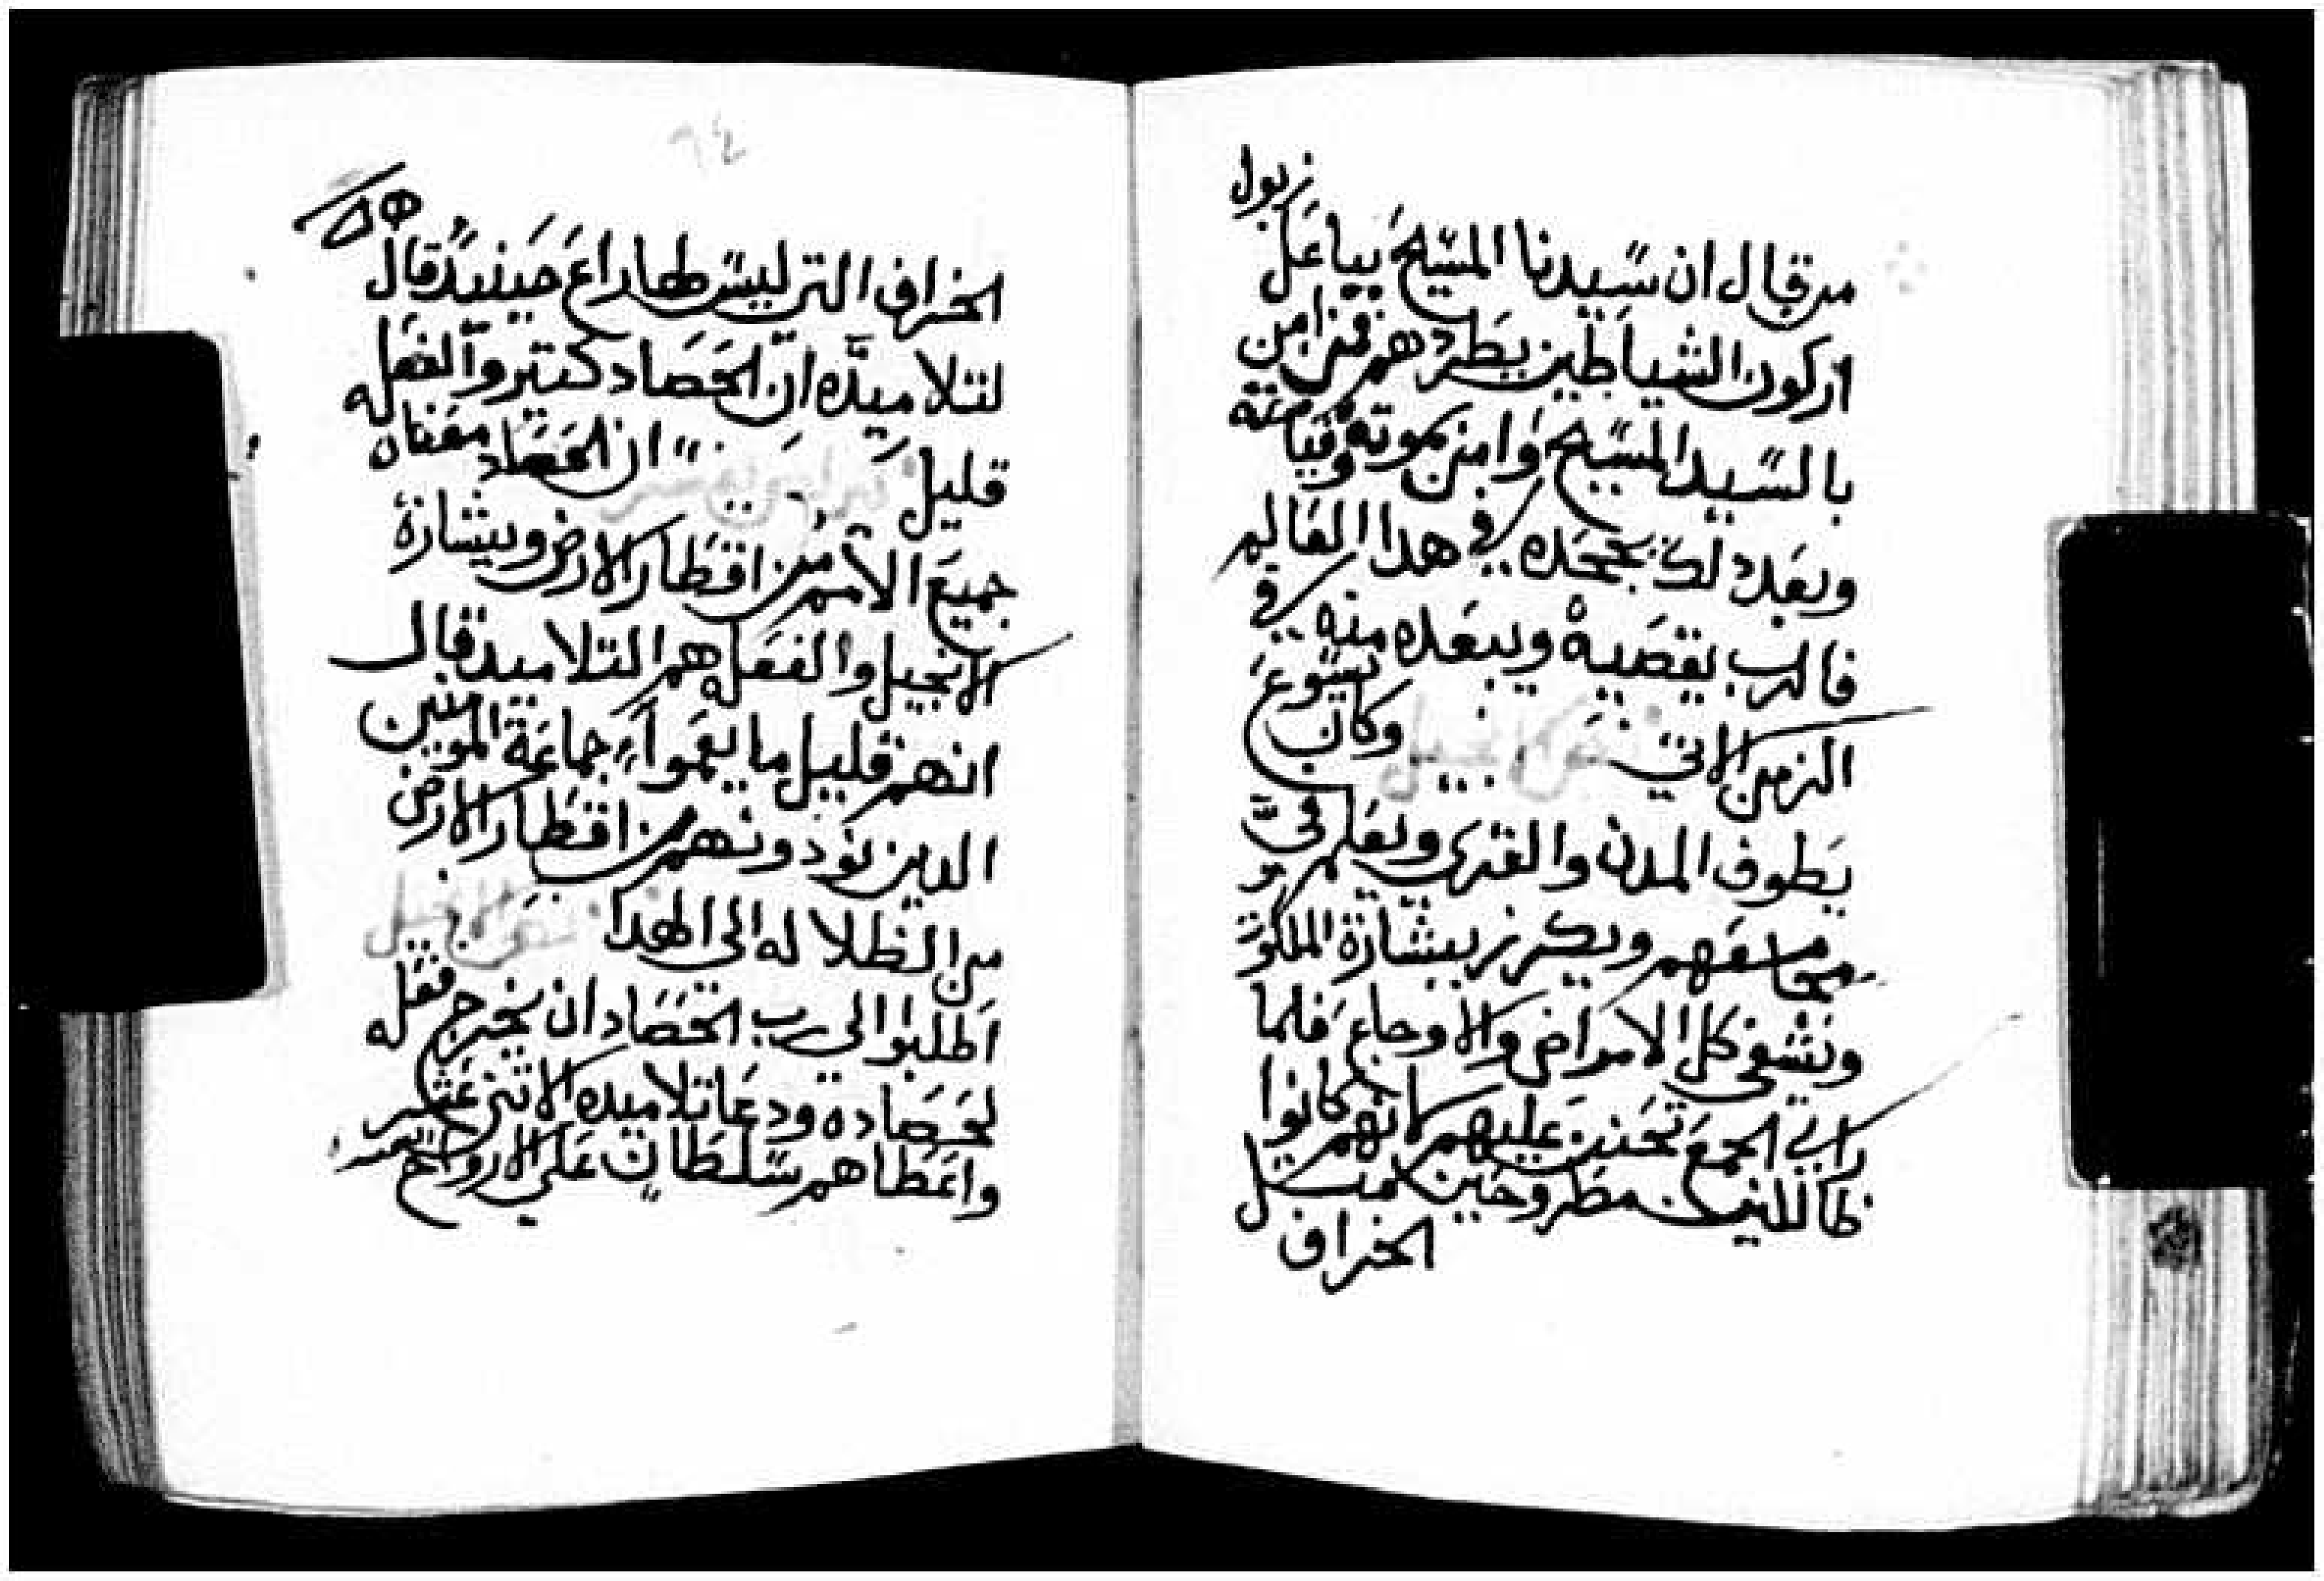 زبول
من قال ان سيدنا المسيح بباعل
اركون الشياطين يطردهم فمن امن
بالسيد المسيح وامن بموته وقيامته
وبعد دلك يجحده في هدا العالم
فالرب يقصيه ويبعده منه في
الزمن الاتي نص الانجيل وكان يسوع
يطوف المدن والقرى ويعلم في
مجامعهم ويكرز ببشارة الملكوت
ويشفي كل الامراض والاوجاع فلما
راي الجمع تحنن عليهم لانهم كانوا
ظاللين مطروحين كمتل
الخراف
٩٤
الخراف التي ليس لها راع حينيد قال
لتلاميده ان الحصاد كتير والفعله
قليل ان الحصاد معناه
جميع الامم من اقطار الارض وبشارة
الانجيل والفعله هم التلاميد قال
انهم قليل ما يعموا جماعة المومنين
الدين نودونهم من اقطار الارض
من الظلاله الى الهدا نص الانجيل
اطلبوا الي رب الحصاد ان يخرج فعله
لحصاده ودعا تلاميده الاتني عشر
واعطاهم سلطان علي الارواح